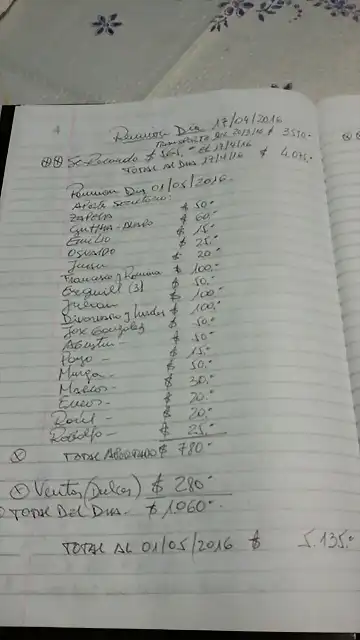 Reunion Dia 17/04/2016
Transporte del 20/3/16 $ 3530.-
Se Recaudo $ 565.- el 17/4/16
Total al dia 17/4/16 $ 4.075.-
Reunion Dia 01/05/2016.
Aporte Societario:
Zapella $ 50.-
Cynthia - $ 60.-
Emilio $ 15.-
Osvaldo $ 25.-
Juan $ 20.-
Francisco y Romina $ 100.-
Exequiel (3) $ 50.-
Julian $ 100.-
Dionisio y Lourdes $ 100.-
Jose Gonzalez $ 50.-
Agustin - $ 50.-
Pozo - $ 15.-
Murga - $ 50.-
Marcos - $ 30.-
Enzos - $ 20.-
Raul - $ 20.-
Rodolfo - $ 25.-
Total Abortado $ 780.-
Ventas (Dulces) $ 280.-
Total del Dia - $ 1.060.-
Total al 01/05/2016 $ 5.135.-